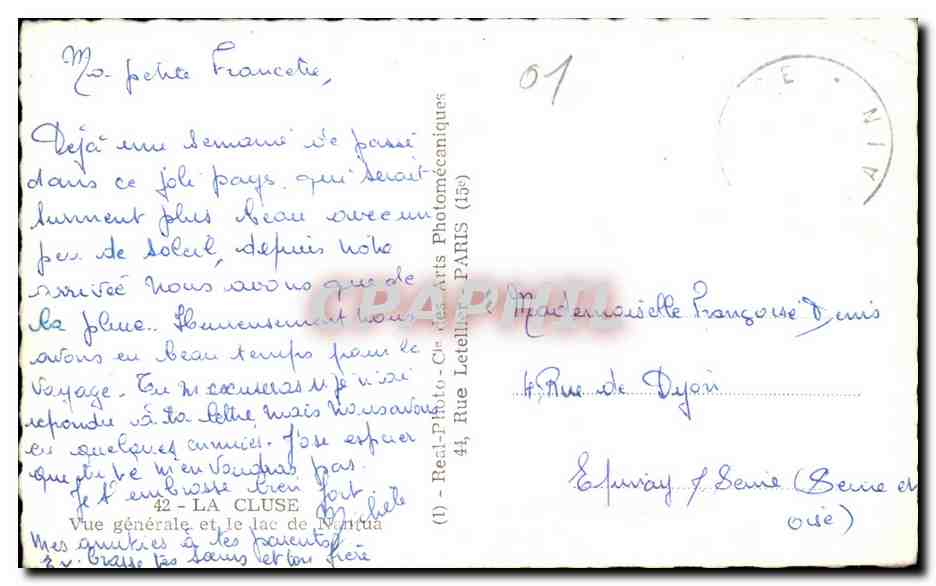 Ma petite Francette,
Déjà une semaine de passé
dans ce joli pays qui serait
surement plus beau avec un
peu de soleil, depuis notre
arrivée nous avons que de
la pluie.. Heureusement nous
avons eu beau temps pour le
voyage. Tu m'excuseras si je n'ai
répondu à ta lettre mais nous avons
eu quelques ennuies. J'ose espérer
que tu ne m'en voudras pas.
Je t'embrasse bien fort
Michèle
42 - LA CLUSE
Vue générale et le lac de Nantua
Mes amitiés à tes parents
Embrasse tes sœurs et ton frère
(1) - Real-Photo - Cie des Arts Photomécaniques
44, Rue Letellier - PARIS (15e)
01
E • AIN
CPAPHIL
Mademoiselle Françoise Denis
4, Rue de Dijon
Epinay s/ Seine (Seine et
oise)